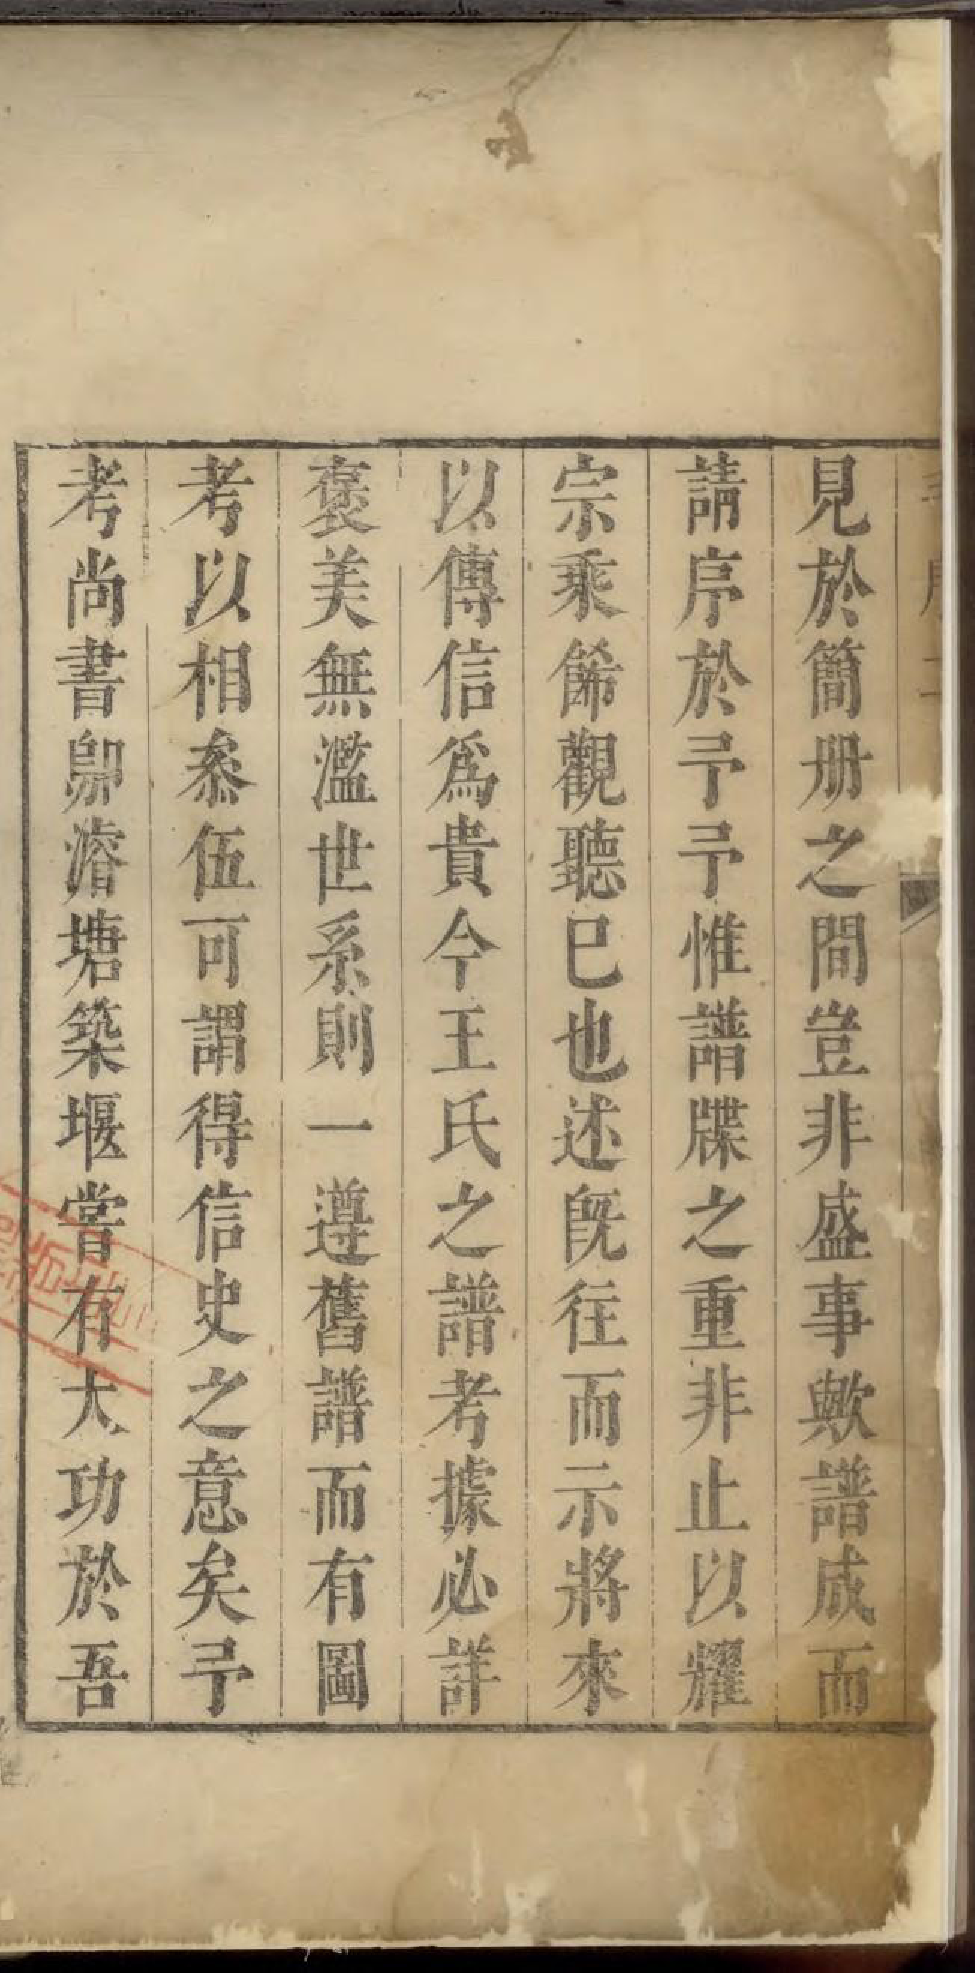 見於簡册之間豈非盛事歟譜成而
請序於予予惟譜牒之重非止以耀
宗乘餙觀聽已也述旣往而示將來
以傳信爲貴今王氏之譜考據必詳
褒美無濫世系則一遵舊譜而有圖
考以相叅伍可謂得信史之意矣予
考尚書卿濬塘築堰嘗有大功於吾